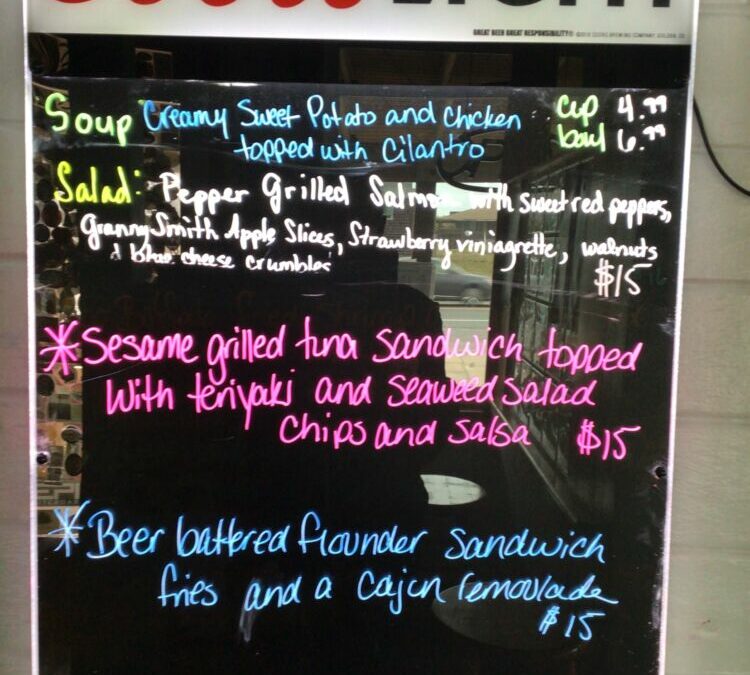 GREAT BEER GREAT RESPONSIBILITY®
Soup Creamy Sweet Potato and Chicken cup 4.99
topped with Cilantro bowl 6.99
Salad: Pepper Grilled Salmon with sweet red peppers,
Granny Smith Apple Slices, Strawberry viniagrette, walnuts
& blue cheese crumbles
$15
*Sesame grilled tuna sandwich topped
with teriyaki and seaweed salad
chips and salsa $15
*Beer battered flounder sandwich
fries and a cajun remoulade
$15